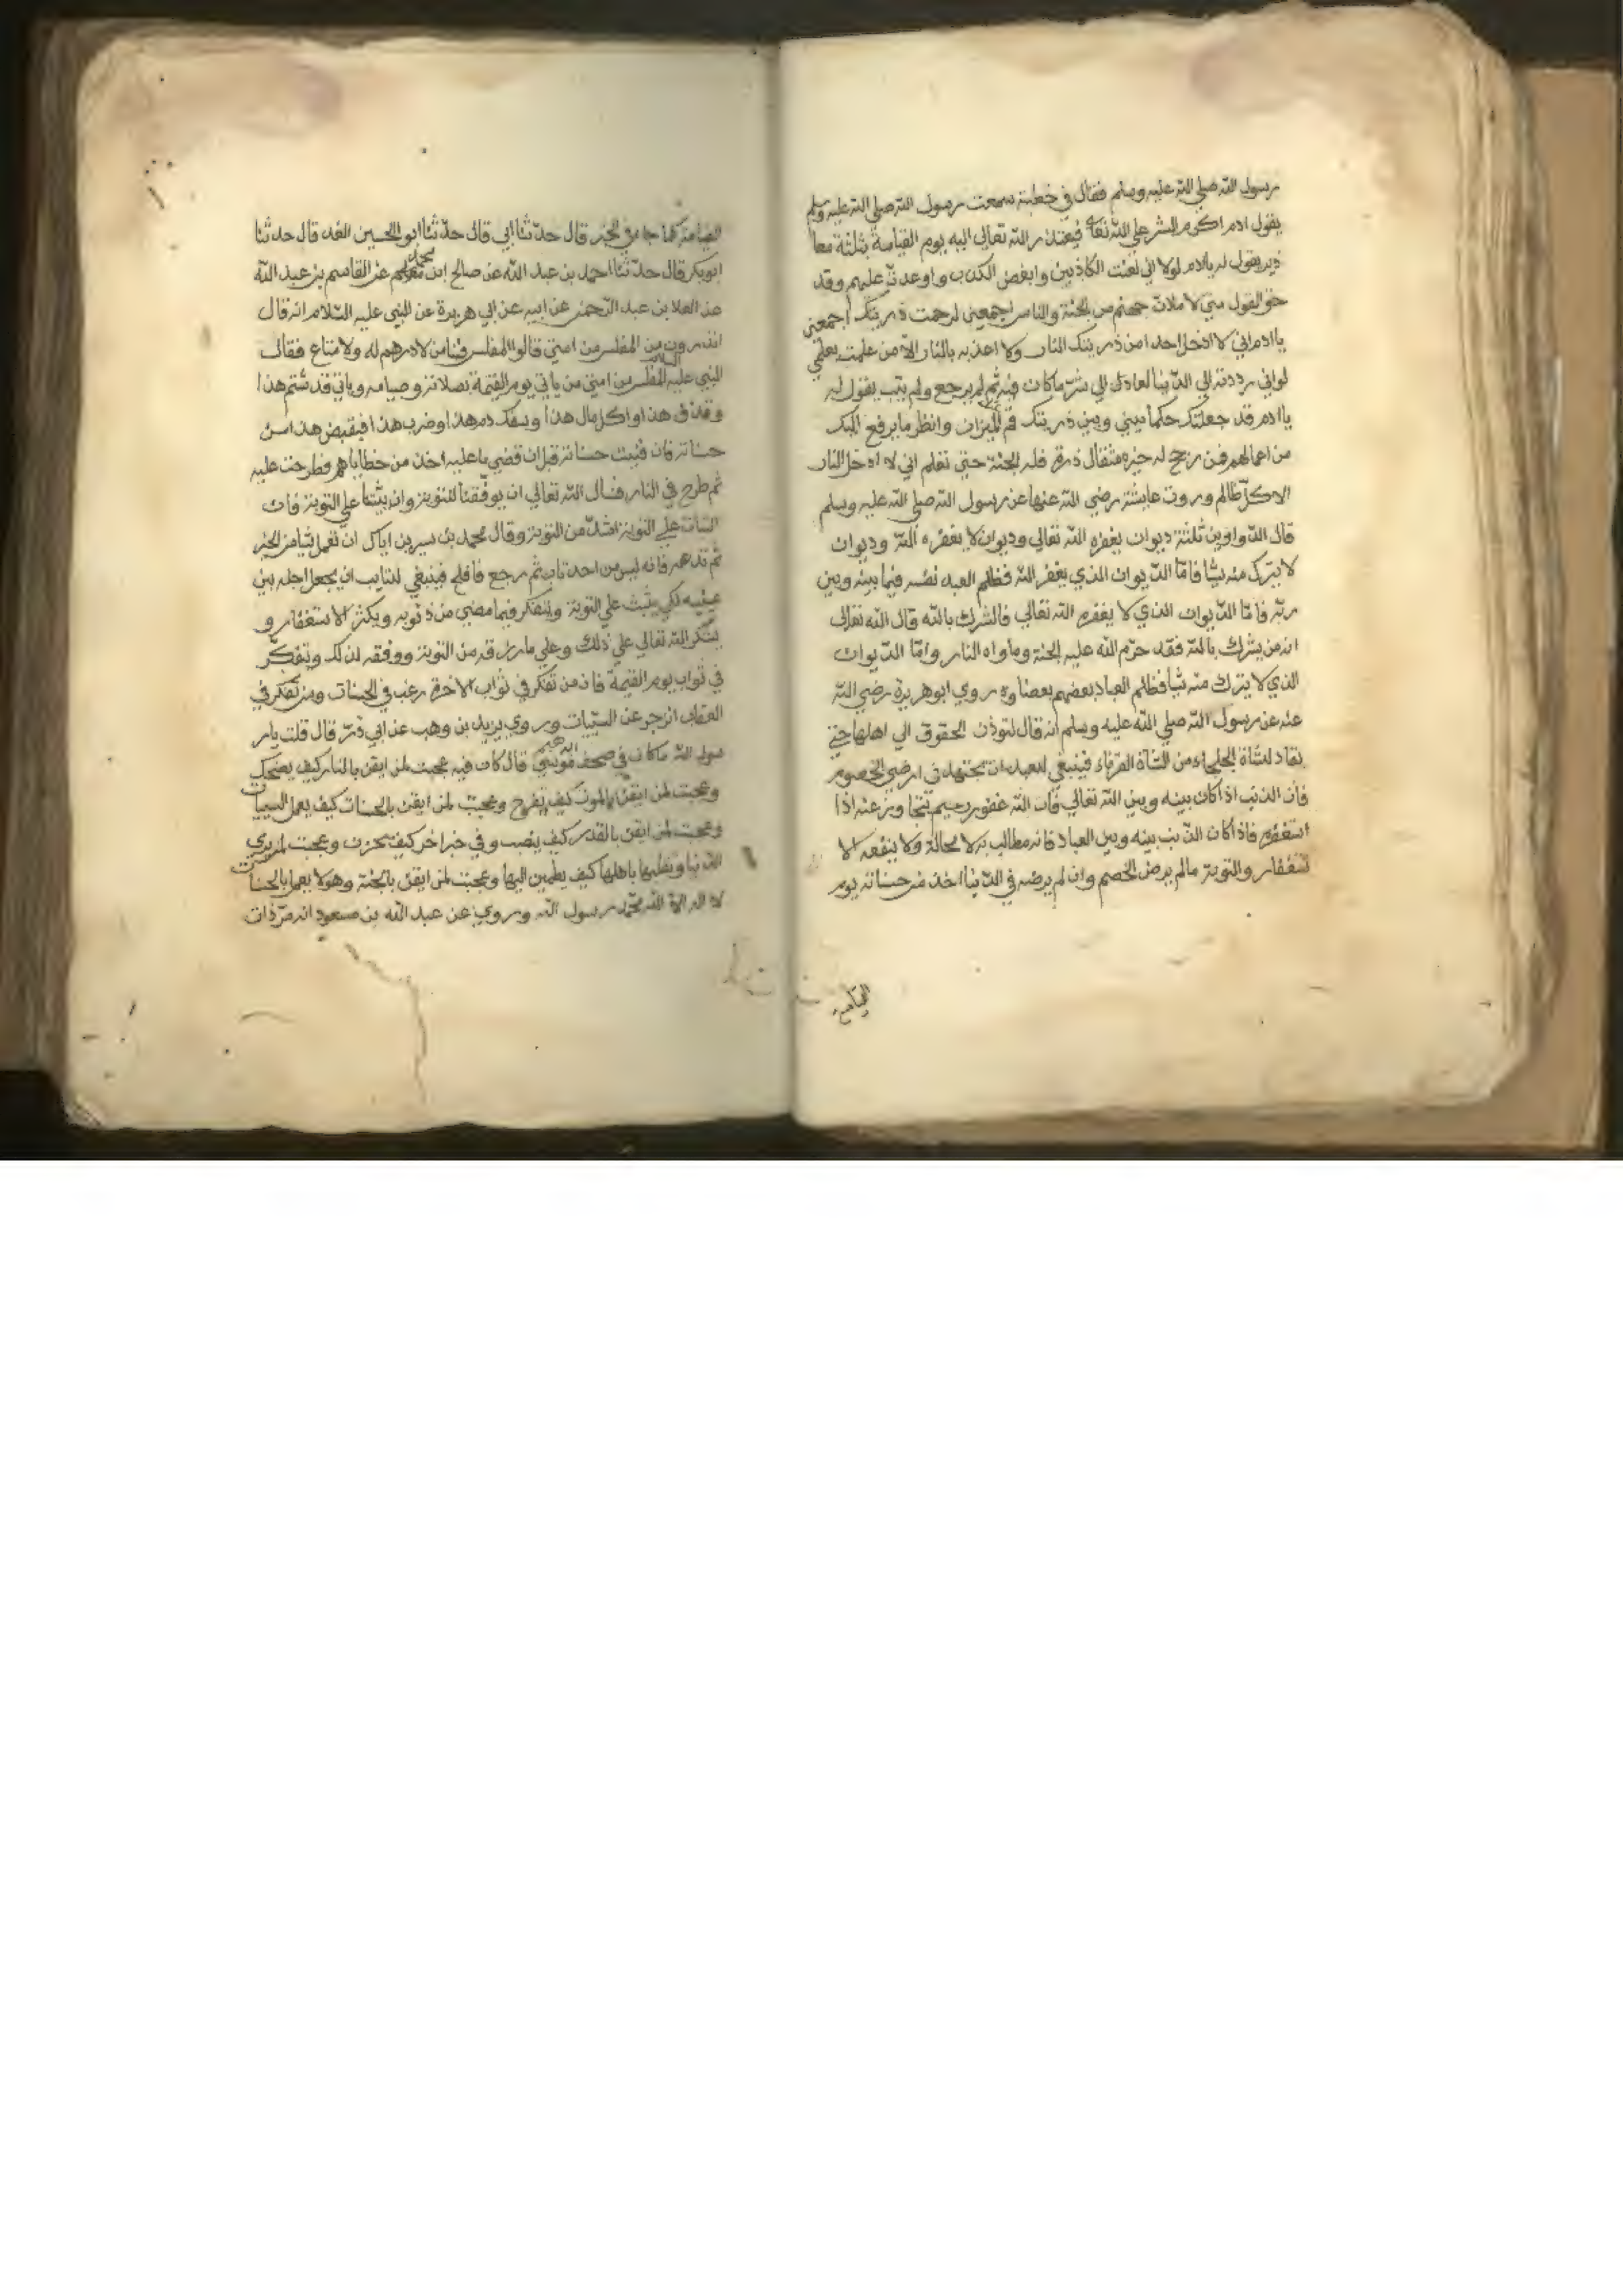 رسول الله صلي الله عليه وسلم فقال في خطبته سمعت رسول الله صلي الله عليه وسلم
يقول ادم اكرم البشر علي الله تعالي فيعتذر الله تعالي اليه يوم القيامة بثلثة معا
ذير يقول له يا ادم لولا اني لعنت الكاذبين وابغض الكذب واوعدت عليهم وقد
حق القول مني لاملان جهنم من الجنة والناس اجمعين لرحمت ذريتك اجمعين
يا ادم اني لا ادخل احدا من ذريتك النار ولا اعذبه بالنار الا من علمت بعلمي
لو اني رددته الي الدنيا لعاد الي شر ما كان فيه ثم لم يرجع ولم يتب يقول له
يا ادم قد جعلتك حكما بيني وبين ذريتك قم الميزان وانظر ما يرفع اليك
من اعمالهم فمن رجح له خيره مثقال ذرة فله الجنة حتي تعلم اني لا ادخل النار
الا كل ظالم وروت عايشة رضي الله عنها عن رسول الله صلي الله عليه وسلم
قال الدواوين ثلثة ديوان يغفره الله تعالي وديوان لا يغفره الله وديوان
لا يترك منه شيا فاما الديوان الذي يغفر الله فظلم العبد نفسه فيما بينه وبين
ربه فاما الديوان الذي لا يغفره الله تعالي فالشرك بالله قال الله تعالي
انه من يشرك بالله فقد حرم الله عليه الجنة وماواه النار واما الديوان
الذي لا يترك منه شيا فظلم العباد بعضهم بعضا وروي ابو هريرة رضي الله
عنه عن رسول الله صلي الله عليه وسلم انه قال لتوذن الحقوق الي اهلها حتي
يقاد لشاة الجلحاء من الشاة القرناء فينبغي للعبد ان يجتهد في ارضي الخصوم
فان الذنب اذا كان بينه وبين الله تعالي فان الله غفور رحيم يتجاوز عنه اذا
استغفره فاذ اكان الذنب بينه وبين العباد فانه مطالب به لا محالة ولا ينفعه الا
ستغفار والتوبة مالم يرض الخصم وان لم يرضه في الدنيا اخذ من حسناته يوم
القيامة
القيامة كما جا في الخبر قال حدثنا ابي قال حدثنا ابو الحسين قال حدثنا
ابو بكر قال حدثنا احمد بن عبد الله عن صالح ابن محمد عن القاسم بن عبد الله
عن العلا بن عبد الرحمن عن ابيه عن ابي هريرة عن النبي عليه السلام انه قال
اتدرون من المفلس من امتي قالوا المفلس فينا من لا درهم له ولا متاع فقال
النبي عليه السلام المفلس من امتي من ياتي يوم القيمة بصلاته وصيامه وياتي قد شتم هذا
وقذف هذا واكل مال هذا وسفك دم هذا وضرب هذا فيقبض هذا من
حسناته فان فنيت حسناته قبل ان قضي ما عليه اخذ من خطاياهم فطرحت عليه
ثم طرح في النار فنسال الله تعالي ان يوفقنا للتوبة وان يثبتنا علي التوبة فان
الثبات علي التوبة اشد من التوبة وقال محمد بن سيرين اياك ان تعمل شيا من الخير
ثم تدعه فانه ليس من احد تاب ثم رجع فافلح فينبغي للتايب ان يجعل اجله بين
عينيه لكي يثبت علي التوبة ويتفكر فيما مضي من ذنوبه ويكثر الاستغفار و
يشكر الله تعالي علي ذلك وعلي ما رزقه من التوبة ووفقه لذلك ويتفكر
في ثواب يوم القيمة فان من تفكر في ثواب الاخرة رغب في الحسنات ومن تفكر في
العقاب انزجر عن السيئات وروي يزيد بن وهب عن ابي ذر قال قلت يار
سول الله ما كان في صحف موسي قال كان فيه عجبت لمن ايقن بالنار كيف يضحك
وعجبت لمن ايقن بالموت كيف يفرح وعجبت لمن ايقن بالحسنات كيف يعمل السييات
وعجبت لمن ايقن بالقدر كيف ينصب وفي خبر اخر كيف يحزن وعجبت لمن يري
الدنيا وتقلبها باهلها كيف يطمين اليها وعجبت لمن ايقن بالجنة وهو لا يعمل بالحسنات
لا اله الا الله محمد رسول الله وروي عن عبد الله بن مسعود انه مر ذات